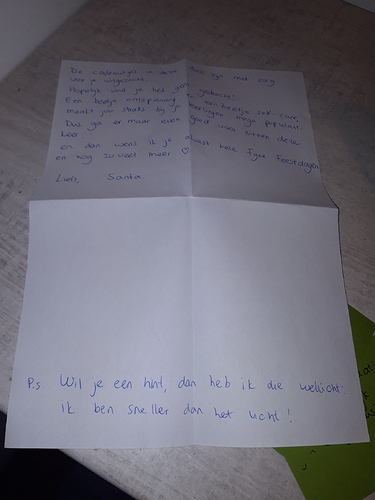 De cadeautjes in deze doos zijn met zorg
voor je uitgezocht.
Hopelijk vind je het gaaf gedacht!
Een beetje ontspanning en een beetje self-care,
maakt jou straks bij je mega populair
Dus ga er maar even goed voor zitten deze
keer
en dan wens ik je alvast hele fijne feestdagen
en nog zoveel meer ♡
Liefs, Santa
P.s Wil je een hint, dan heb ik die wellicht:
ik ben sneller dan het licht!